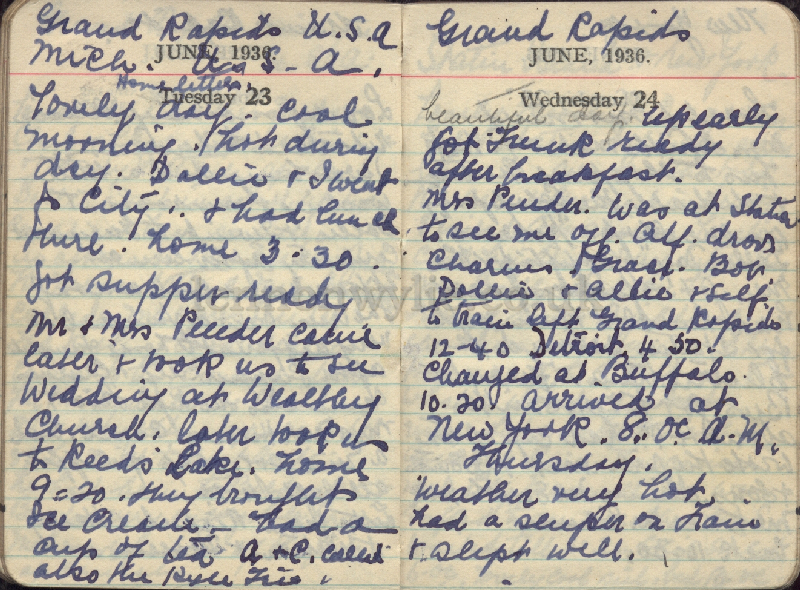 Grand Rapids U.S.A
Mich. U-S-A.
JUNE, 1936.
Home letters.
Tuesday 23
Lovely day. Cool
morning. hot during
day. Dollie + I went
to City. + had lunch
there. home 3-30.
got supper ready
Mr + Mrs Peeder came
later + took us to see
Wedding at Wealthy
Church. later took us
to Reeds Lake. home
9=20. they brought
Ice Cream - had a
cup of tea A + C. came
also the
Grand Rapids
JUNE, 1936.
Wednesday 24
beautiful day. up early
got Trunk ready
after breakfast.
Mrs Peeder. was at Station
to see me off. Alf. drove
Grace. Bob
Dollie + Allie + self
to train left Grand Rapids
12-40 Detroit 4 50.
Changed at Buffalo.
10.20. arrived at
New York. 8. oc A.M.
Thursday.
Weather very hot.
had a sleeper on Train
+ slept well.
lennonwylie.co.uk